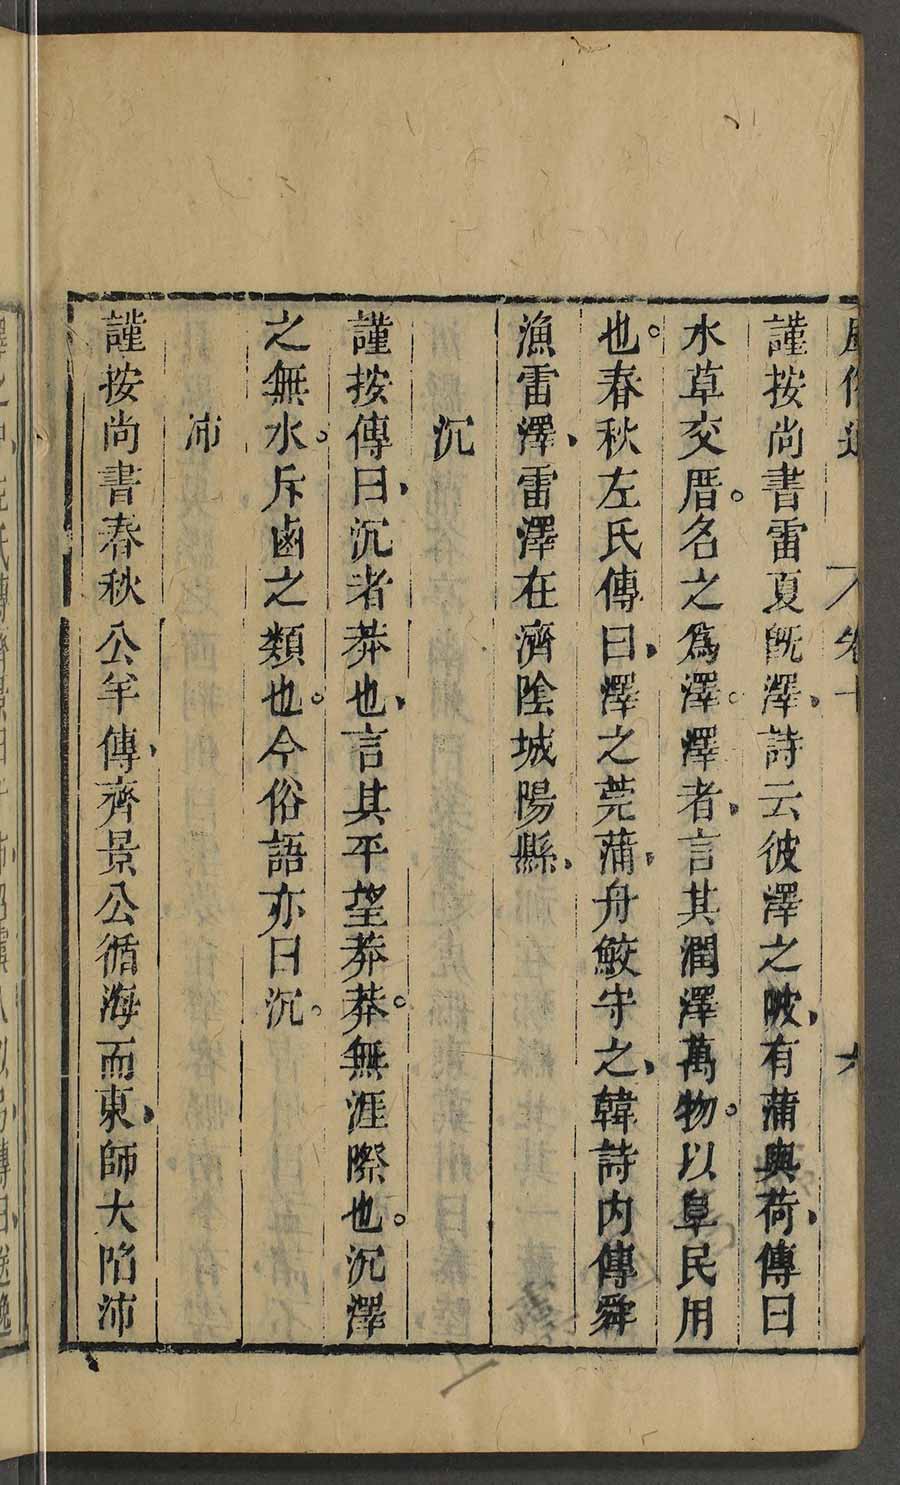 謹按尚書雷夏旣澤詩云彼澤之陂有蒲與荷傳曰
水草交厝名之爲澤澤者言其潤澤萬物以阜民用
也春秋左氏傳曰澤之莞蒲舟鮫守之韓詩内傳舜
漁雷澤雷澤在濟陰城陽縣
沉
謹按傳曰沉者莽也言其平望莽莽無涯際也沉澤
之無水斥鹵之類也今俗語亦曰沉
沛
謹按尚書春秋公羊傳齊景公循海而東師大陷沛